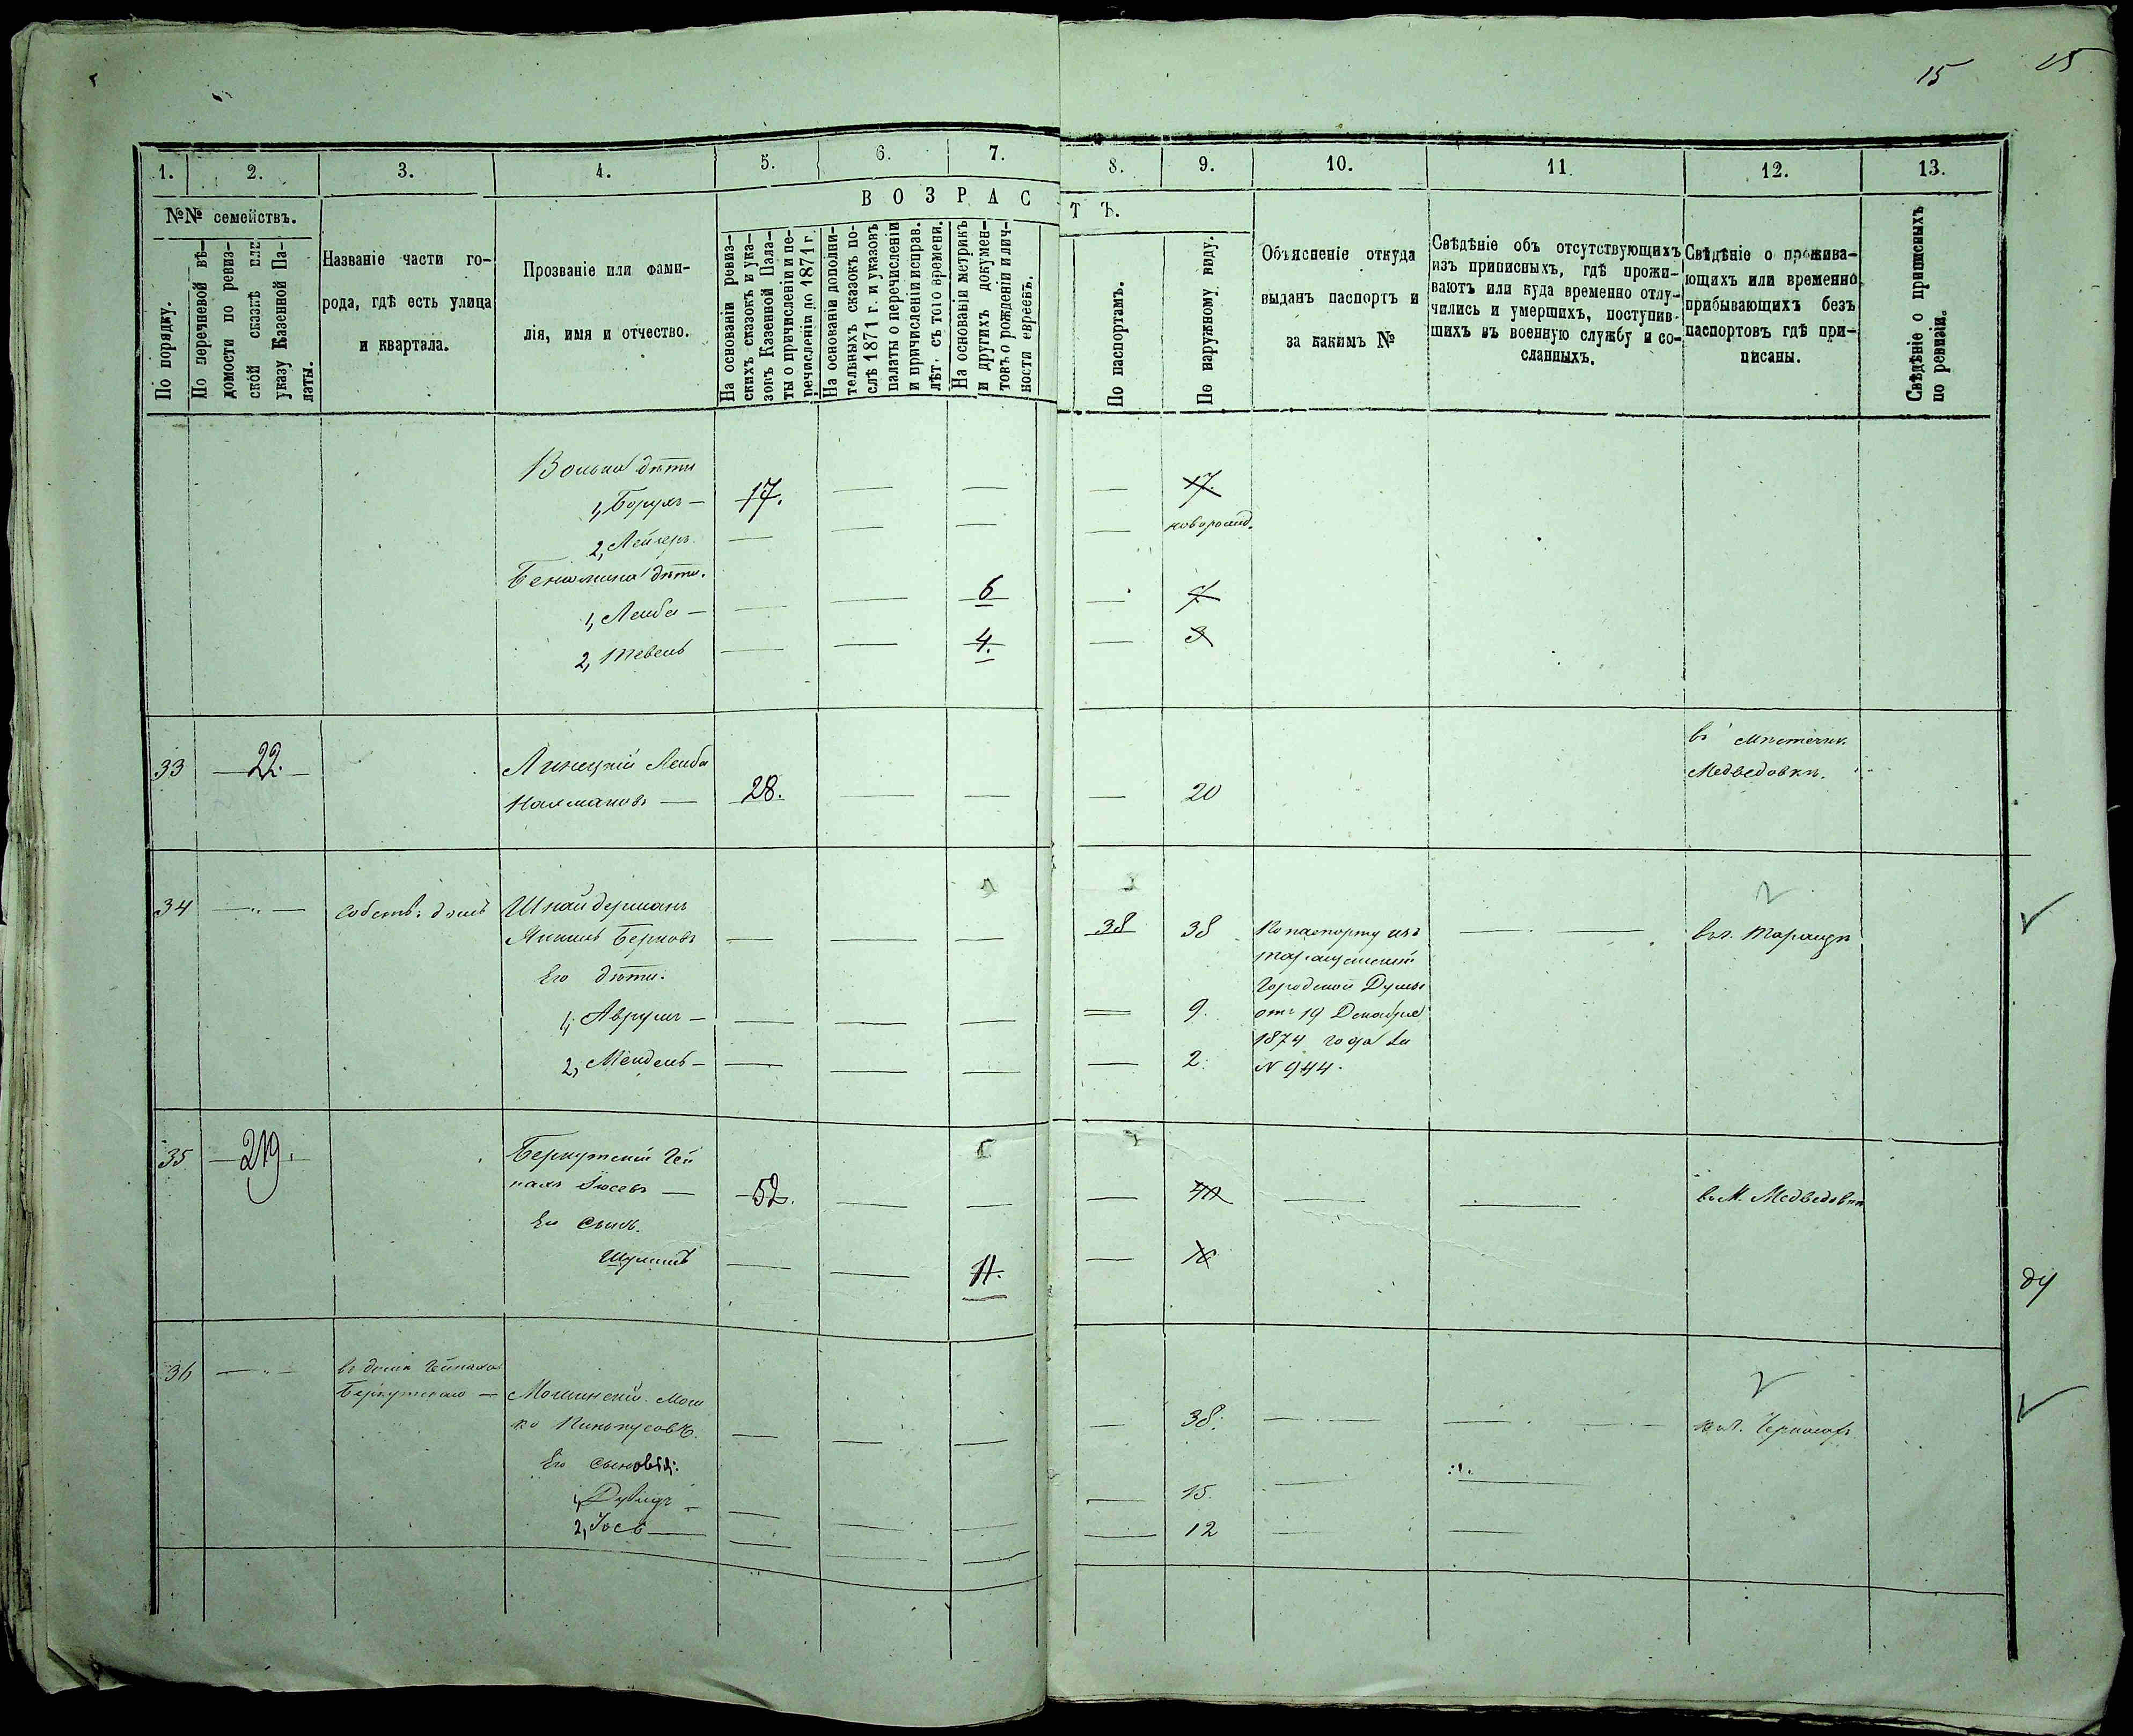 15 15
1. 2. 3. 4. 5. 6. 7. 8. 9. 10. 11. 12. 13.
№№ семействъ.
По порядку.
По перечневой вѣ-
домости по ревиз-
ской сказкѣ или
указу Казенной Па-
латы.
Названіе части го-
рода, гдѣ есть улица
и квартала.
Прозваніе или фами-
лія, имя и отчество.
ВОЗРАСТЪ.
На основаніи ревиз-
скихъ сказокъ и ука-
зовъ Казенной Пала-
ты о причисленіи и пе-
речисленіи до 1871 г.
На основаніи дополни-
тельныхъ сказокъ по-
слѣ 1871 г. и указовъ
палаты о перечисленіи
и причисленіи исправ.
лѣт. съ того времени.
На основаніи метрикъ
и другихъ докумен-
товъ о рожденіи и лич-
ности евреевъ.
По паспортамъ.
По наружному виду.
Объясненіе откуда
выданъ паспортъ и
за какимъ №
Свѣдѣніе объ отсутствующихъ
изъ приписныхъ, гдѣ прожи-
ваютъ или куда временно отлу-
чились и умершихъ, поступив-
шихъ въ военную службу и со-
сланныхъ.
Свѣдѣніе о прожива-
ющихъ или временно
прибывающихъ безъ
паспортовъ гдѣ при-
писаны.
Свѣдѣніе о приписныхъ
по ревизіи.
Волька дѣти
1, Борухъ — 17. — — — 17.
2, Лейзеръ — — — — новорожд.
Беньямина дѣти.
1, Лейба — — — 6 — 7
2, Тевель — — 4. — 3
33 — 22. — Линецкій Лейба въ мѣстечк.
Нахмановъ — 28. — — — 20 Медведовкѣ.
34 — " — Собств: домъ Шнайдерманъ
Янкель Берковъ — — — 38 38 По паспорту изъ — — въ г. Таращѣ
Его дѣти. Таращанской
Городской Думы
1, Аврумъ — — — — — 9. отъ 19 Декабря
1874 года за
2, Мендель — — — — — 2. № 944.
35 — 219. Беркутскій Чей
Іосевъ — 52. — — — 40 — — въ М. Медведовкѣ
Его сынъ.
Шулимъ — — 11. — 10
ду
36 — " — въ домѣ
Беркутскаго — Мошинскій Мош
ко Пинькусовъ. — — — — 38. — —
Его сыновья:
1, Дувидъ — — — — — 15. — —
2, Іось — — — — — 12 — —